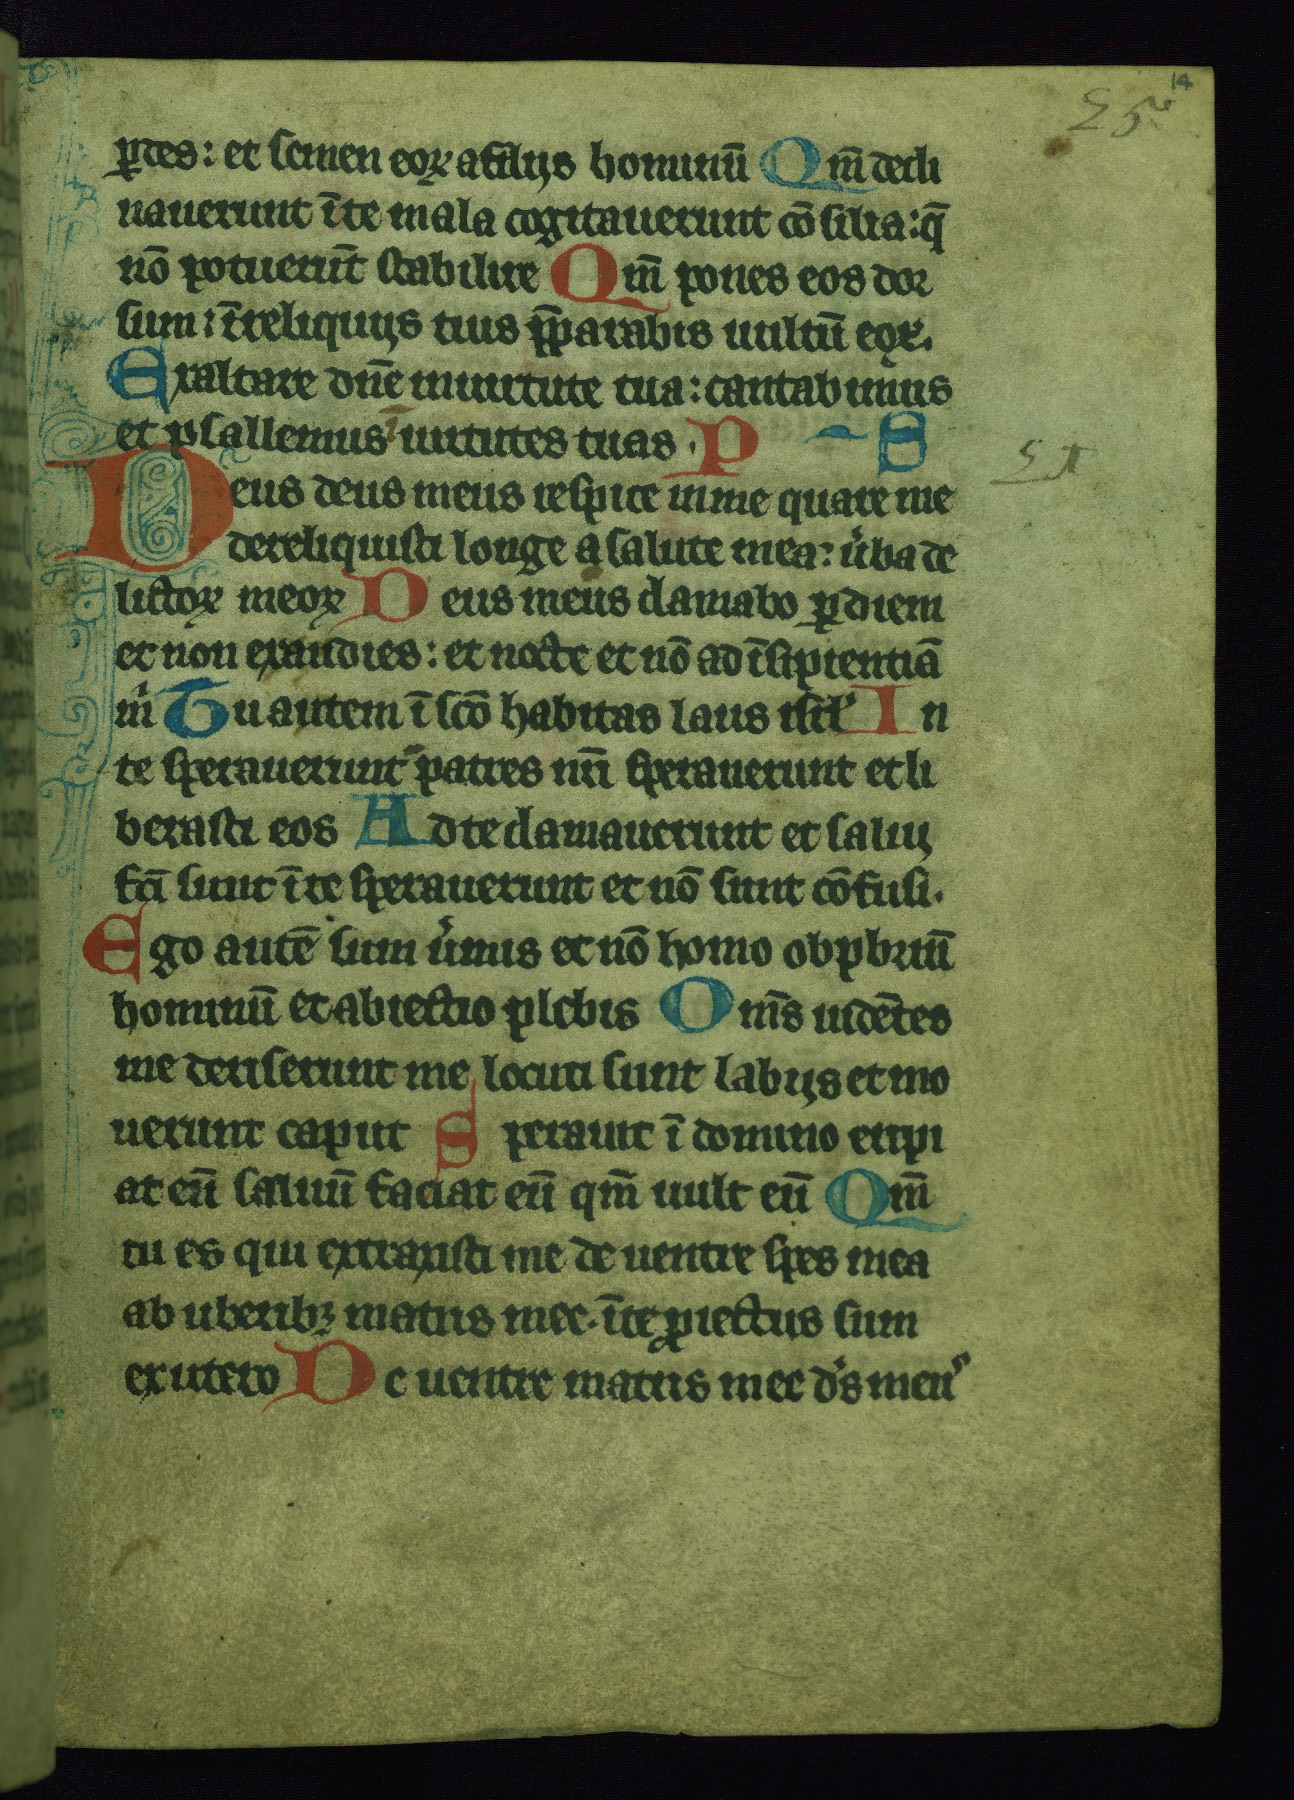 14
25
ꝑdes : et semen eoꝝ a filijs hominū Qm̄ decli
nauerunt ī te mala cogitauerunt cōsilia : q̄
nō potuerūt stabilire Qm̄ pones eos dor
sum : ī reliquijs tuis p̄parabis uultū eoꝝ.
Exaltare dn̄e in uirtute tua : cantabimus
et psallemus uirtutes tuas . P S
Deus deus meus respice in me quare me
dereliquisti longe a salute mea : ūba de
lictoꝝ meoꝝ Deus meus clamabo ꝑ diem
et non exaudies : et nocte et nō ad īsipientiā
m̍ Tu autem ī scō habitas laus isrl̓ In
te sperauerunt patres nr̄i sperauerunt et li
berasti eos Ad te clamauerunt et salui
fc̄i sunt ī te sperauerunt et nō sunt cōfusi.
Ego autē sum u̍mis et nō homo obp̱briū
hominū et abiectio plebis Om̄s uidētes
me deriserunt me locuti sunt labijs et mo
uerunt caput Sperauit ī domino eripi
at eū saluū faciat eū qm̄ uult eū Qm̄
tu es qui extraxisti me de uentre spes mea
ab uberibꝫ matris mee . ī te ꝓiectus sum
ex utero De uentre matris mee d̍s meu᷒